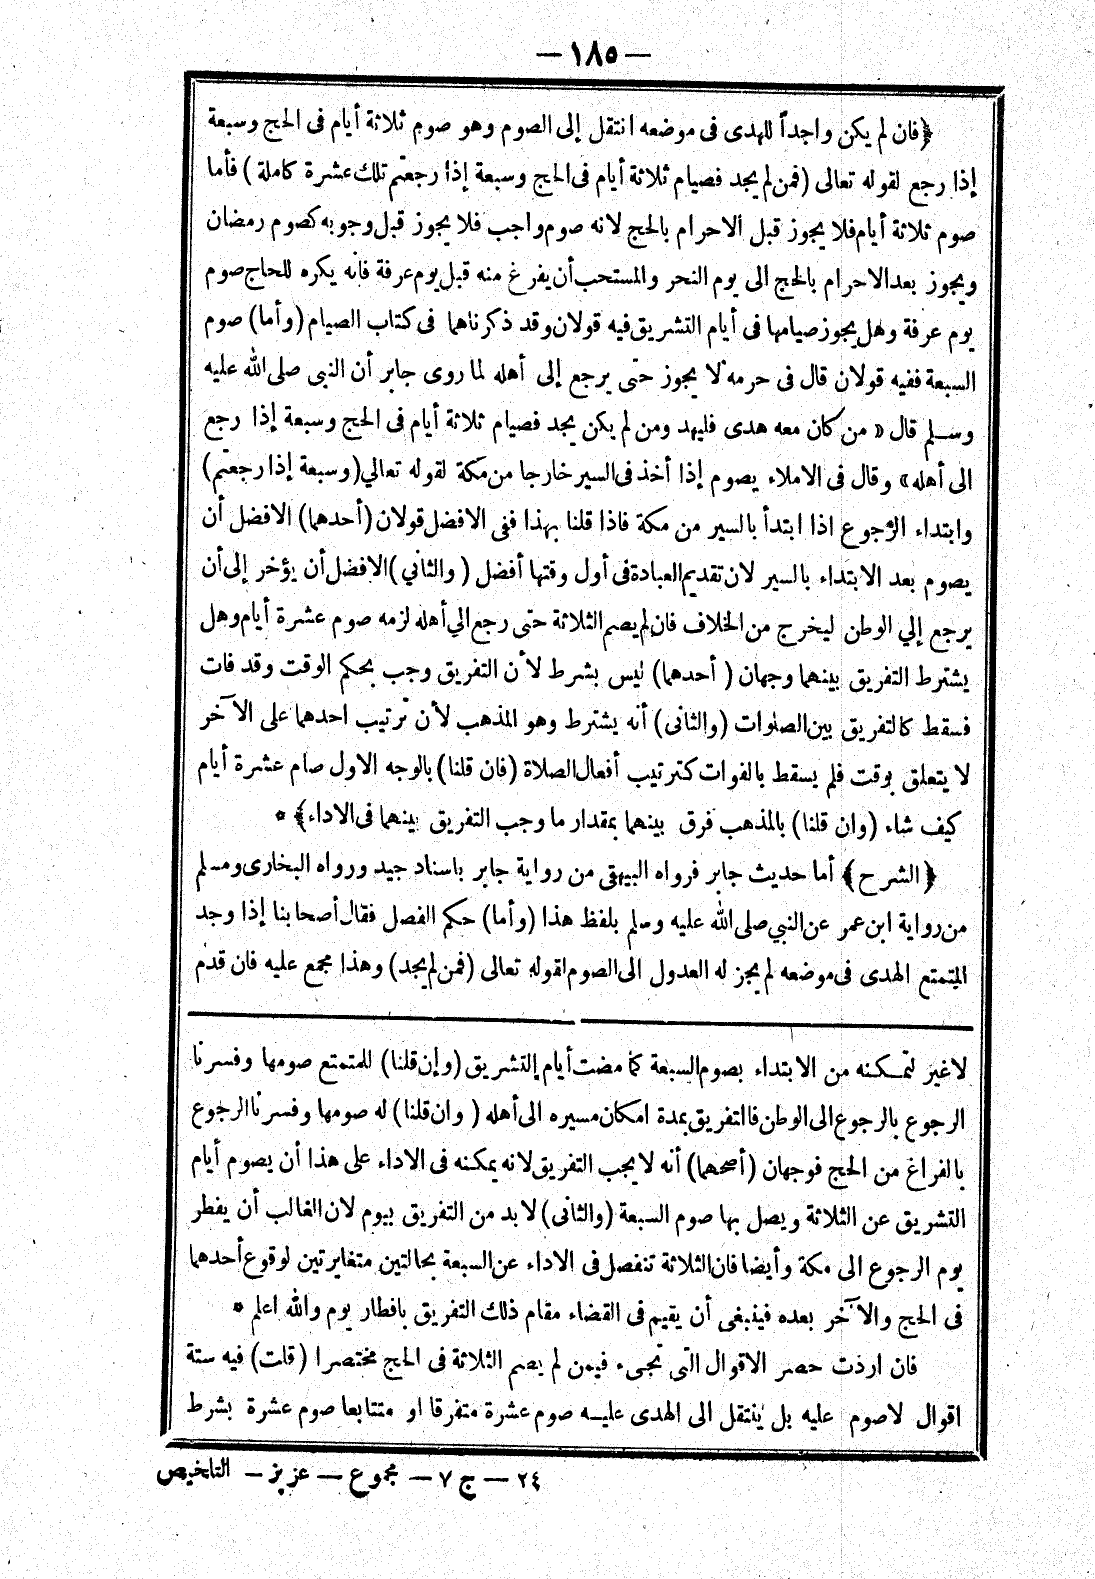 — ١٨٥ —
﴿فان لم يكن واجداً للهدى فى موضعه انتقل إلى الصوم وهو صوم ثلاثة أيام فى الحج وسبعة
إذا رجع لقوله تعالى (فمن لم يجد فصيام ثلاثة أيام فى الحج وسبعة إذا رجعتم تلك عشرة كاملة) فأما
صوم ثلاثة أيام فلا يجوز قبل الاحرام بالحج لانه صوم واجب فلا يجوز قبل وجوبه كصوم رمضان
ويجوز بعد الاحرام بالحج الى يوم النحر والمستحب أن يفرغ منه قبل يوم عرفة فانه يكره للحاج صوم
يوم عرفة وهل يجوز صيامها فى أيام التشريق فيه قولان وقد ذكرناهما فى كتاب الصيام (وأما) صوم
السبعة ففيه قولان قال فى حرمه لا يجوز حتى يرجع إلى أهله لما روى جابر أن النبى صلى الله عليه
وسلم قال « من كان معه هدى فليهد ومن لم يكن يجد فصيام ثلاثة أيام فى الحج وسبعة إذا رجع
الى أهله» وقال فى الاملاء يصوم إذا أخذ فى السير خارجا من مكة لقوله تعالي (وسبعة إذا رجعتم)
وابتداء الرجوع اذا ابتدأ بالسير من مكة فاذا قلنا بهذا ففى الافضل قولان (أحدهما) الافضل أن
يصوم بعد الابتداء بالسير لان تقديم العبادة فى أول وقتها أفضل (والثاني) الافضل أن يؤخر إلى أن
يرجع إلي الوطن ليخرج من الخلاف فان لم يصم الثلاثة حتى رجع الي أهله لزمه صوم عشرة أيام وهل
يشترط التفريق بينهما وجهان (أحدهما) ليس بشرط لأن التفريق وجب بحكم الوقت وقد فات
فسقط كالتفريق بين الصلوات (والثانى) أنه يشترط وهو المذهب لأن ترتيب احدهما على الآخر
لا يتعلق بوقت فلم يسقط بالفوات كترتيب أفعال الصلاة (فان قلنا) بالوجه الاول صام عشرة أيام
كيف شاء (وان قلنا) بالمذهب فرق بينهما بمقدار ما وجب التفريق بينهما فى الاداء﴾ *
﴿الشرح﴾ أما حديث جابر فرواه البيهقى من رواية جابر باسناد جيد ورواه البخارى ومسلم
من رواية ابن عمر عن النبي صلى الله عليه وسلم بلفظ هذا (وأما) حكم الفصل فقال أصحابنا إذا وجد
المتمتع الهدى فى موضعه لم يجز له العدول الى الصوم لقوله تعالى (فمن لم يجد) وهذا مجمع عليه فان قدم
لاغير لتمكنه من الابتداء بصوم السبعة كما مضت أيام التشريق (وإن قلنا) للمتمتع صومها وفسرنا
الرجوع بالرجوع الى الوطن فالتفريق بمدة امكان مسيره الى أهله (وان قلنا) له صومها وفسرنا الرجوع
بالفراغ من الحج فوجهان (أصحهما) أنه لا يجب التفريق لانه يمكنه فى الاداء على هذا أن يصوم أيام
التشريق عن الثلاثة ويصل بها صوم السبعة (والثانى) لا بد من التفريق بيوم لان الغالب أن يفطر
يوم الرجوع الى مكة وأيضا فان الثلاثة تنفصل فى الاداء عن السبعة بحالتين متغايرتين لوقوع أحدهما
فى الحج والآخر بعده فينبغى أن يقيم فى القضاء مقام ذلك التفريق بافطار يوم والله اعلم *
فان اردت حصر الاقوال التى تجىء فيمن لم يصم الثلاثة فى الحج مختصرا (قلت) فيه ستة
اقوال لاصوم عليه بل ينتقل الى الهدى عليه صوم عشرة متفرقا او متتابعا صوم عشرة بشرط
٢٤ — ج ٧ — مجموع — عزيز — التلخيص